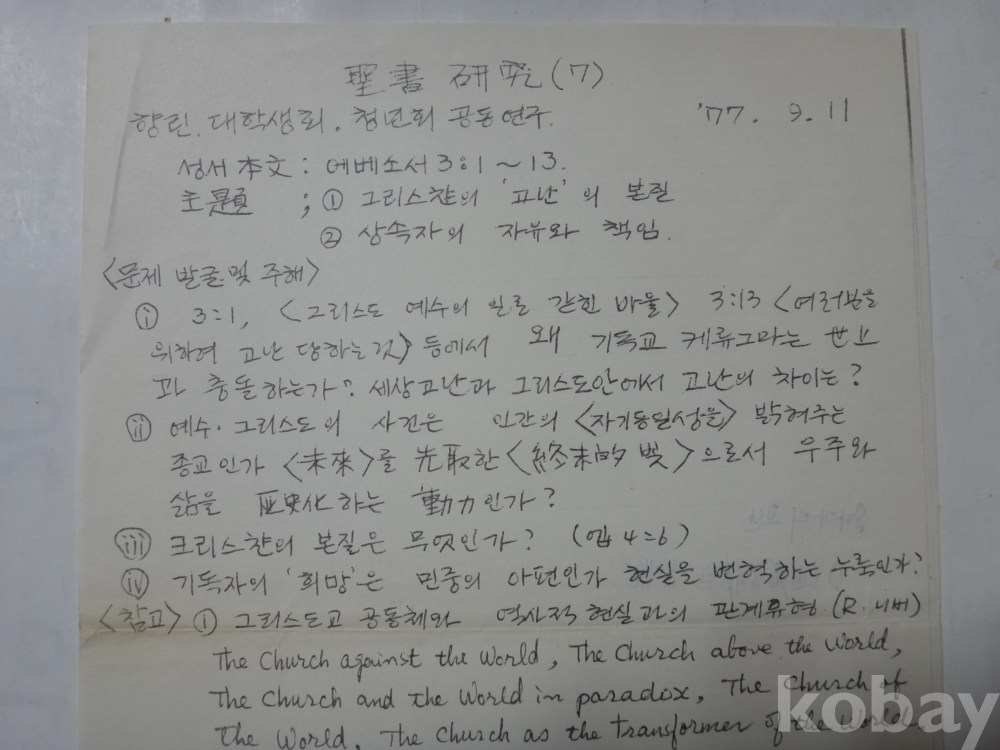 聖書 研究(7)
향린. 대학생회. 청년회 공동연구. '77. 9. 11
성서 本文 : 에베소서 3:1 ~ 13.
主題 ; ① 그리스챤의 '고난'의 본질
② 상속자의 자유와 책임.
<문제 발굴 및 주해>
ⓘ 3:1, <그리스도 예수의 일로 갇힌 바울> 3:13 <여러분을
위하여 고난 당하는 것> 등에서 왜 기독교 케류그마는 世上
과 충돌하는가? 세상고난과 그리스도안에서 고난의 차이는?
ⅱ 예수·그리스도의 사건은 인간의 <자기동일성을> 밝혀주는
종교인가 <未來>를 先取한 <終末的 빛>으로서 우주와
삶을 歷史化하는 動力인가?
ⅲ 크리스챤의 본질은 무엇인가? (엡 4:6)
ⅳ 기독자의 '희망'은 민중의 아편인가 현실을 변혁하는 누룩인가?
<참고> ① 그리스도교 공동체와 역사적 현실과의 관계류형 (R. 니버)
The Church against the World, The Church above the World,
The Church and the World in paradox, The Church of
the World, The Church as the Transformer of the World
kobay